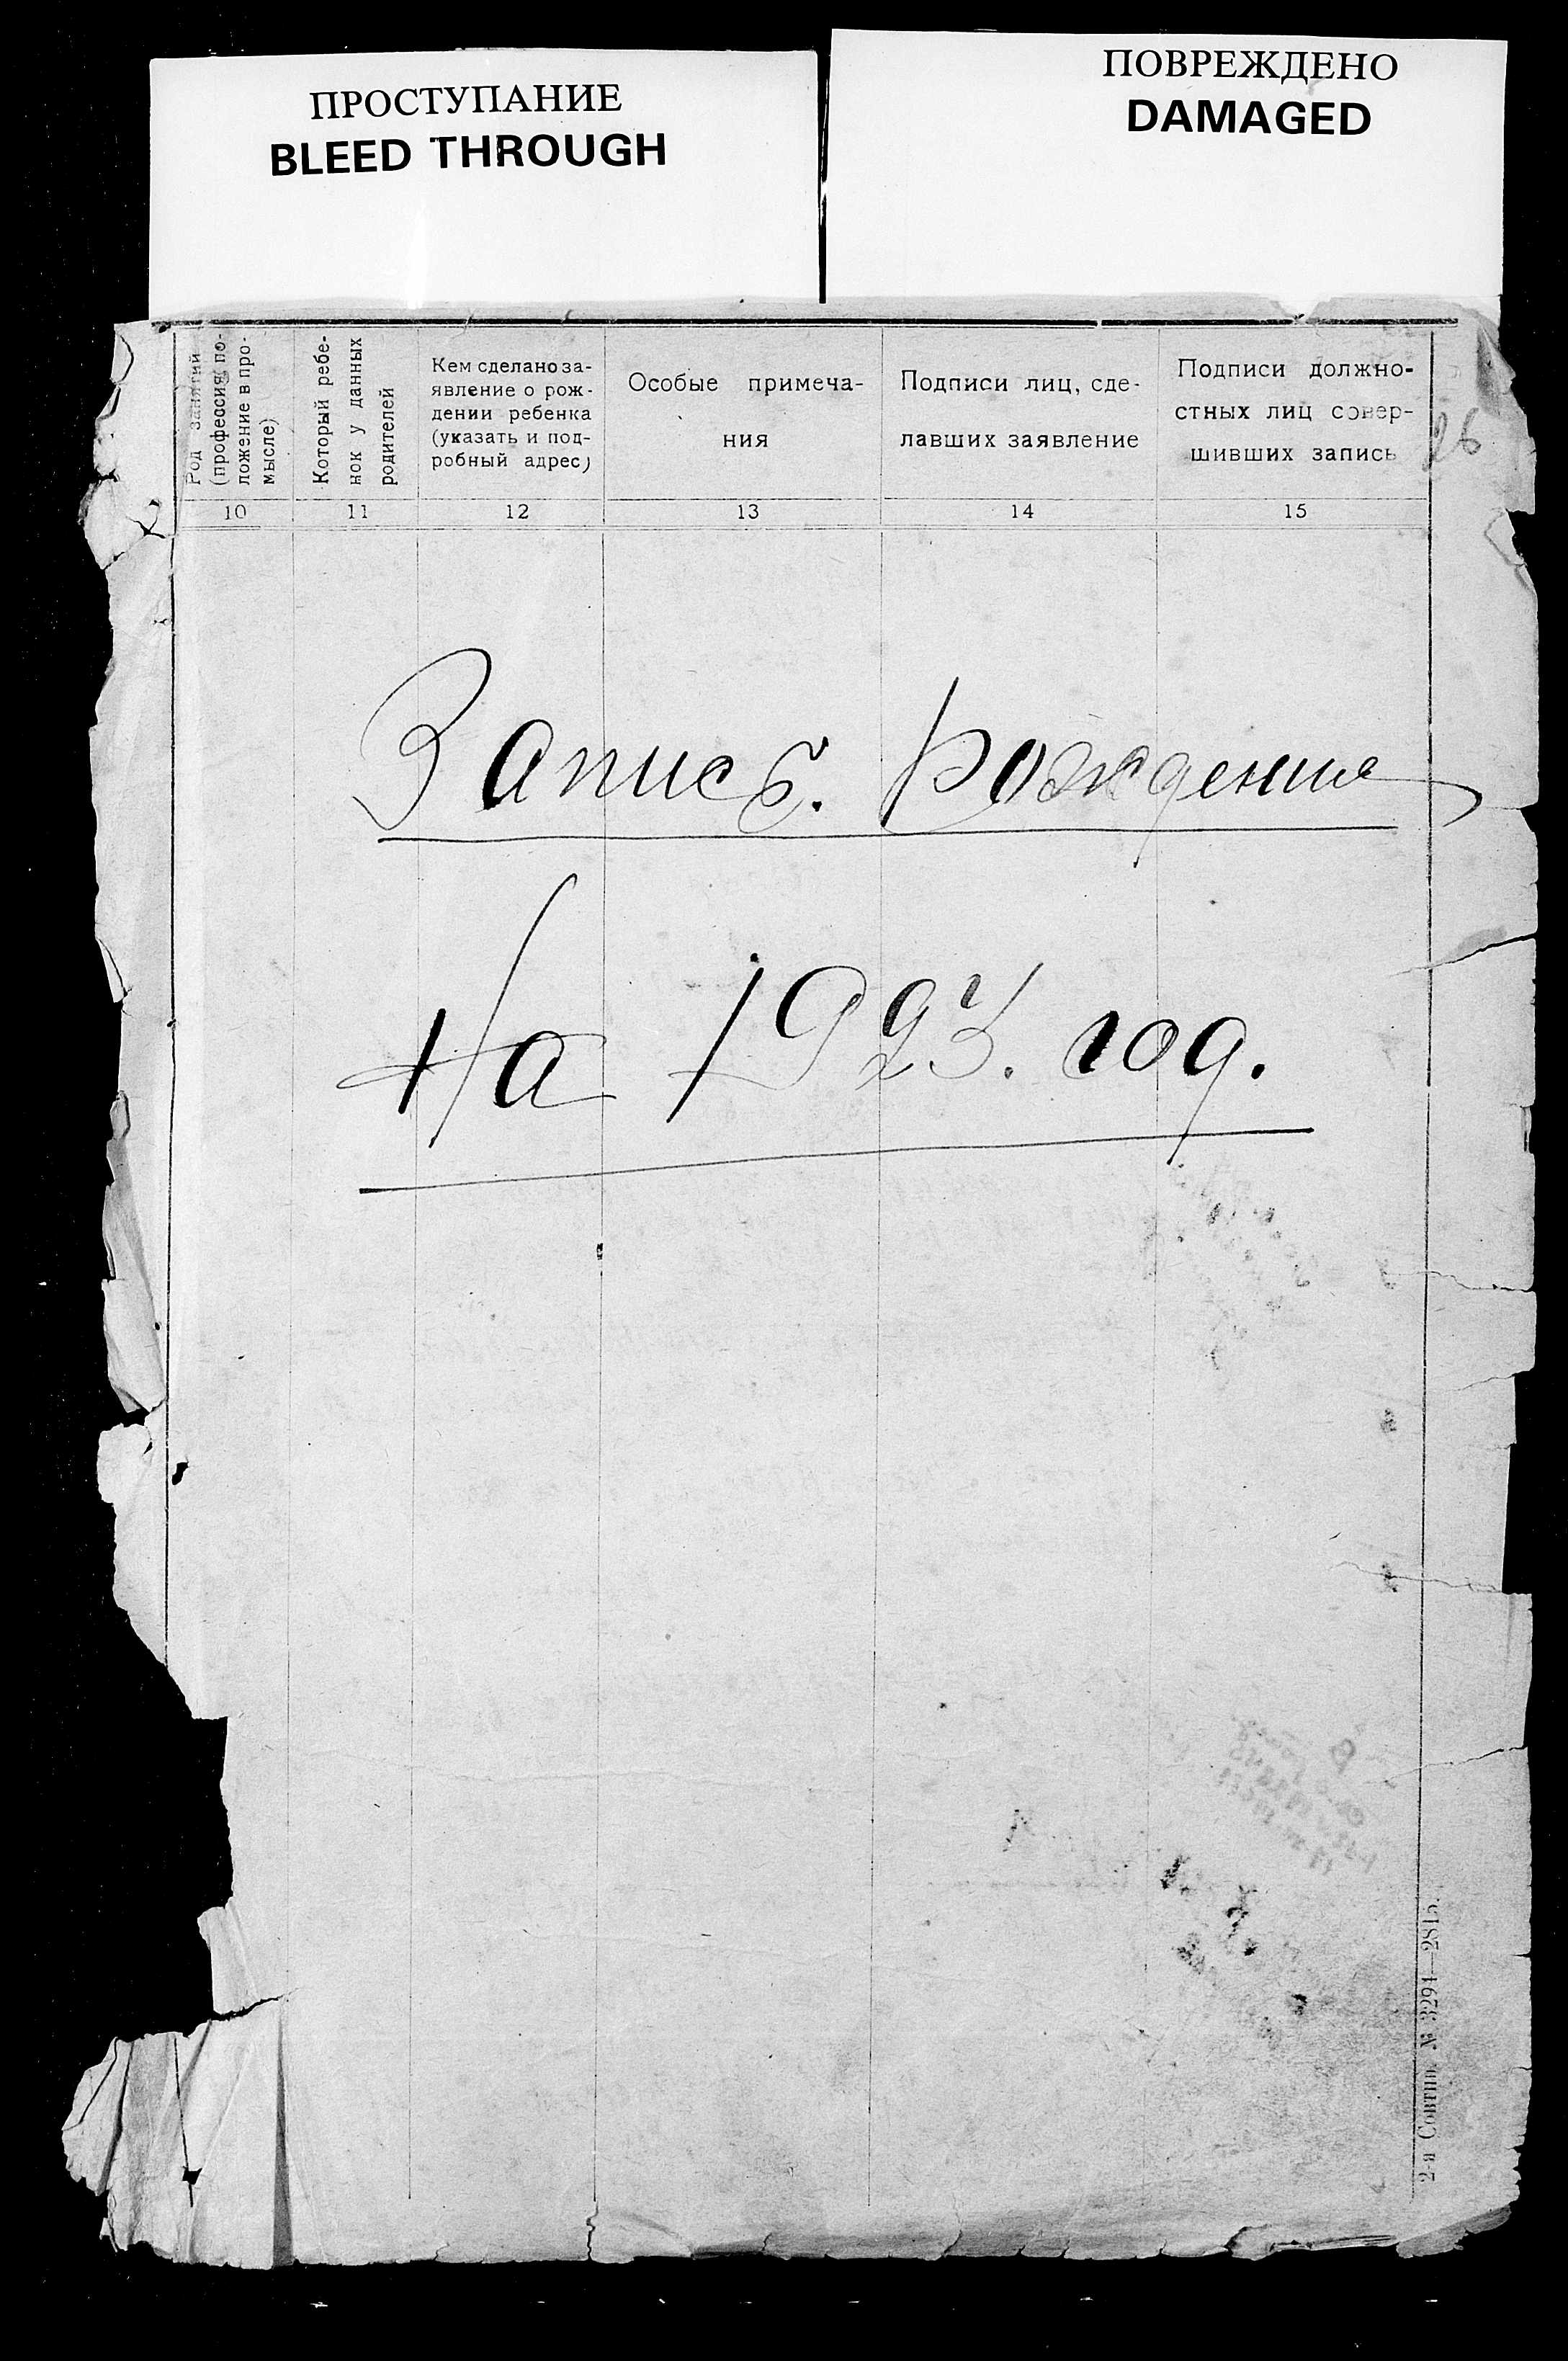 ПРОСТУПАНИЕ
BLEED THROUGH
ПОВРЕЖДЕНО
DAMAGED
Род занятий
(профессия, по-
ложение в про-
мысле)
Который ребе-
нок у данных
родителей
Кем сделано за-
явление о рож-
дении ребенка
(указать и под-
робный адрес)
Особые примеча-
ния
Подписи лиц, сде-
лавших заявление
Подписи должно-
стных лиц совер-
шивших запись
26
10 11 12 13 14 15
Запись. Рождения
На 1923. год.
2-я Совтип. № 3291—2815.